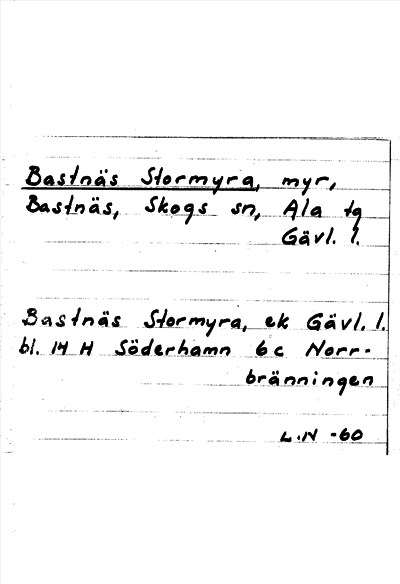 Bastnäs Stormyra, myr,
Bastnäs, Skogs sn, Ala tg
Gävl. l.
Bastnäs Stormyra, ek Gävl. l.
bl. 14 H Söderhamn 6c Norr-
bränningen
L.N -60